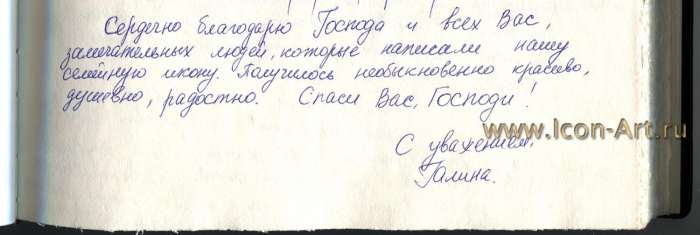 Сердечно благодарю Господа и всех Вас,
замечательных людей, которые написали нашу
семейную икону. Получилось необыкновенно красиво,
душевно, радостно. Спаси Вас, Господи!
www.Icon-Art.ru
С уважением,
Галина.